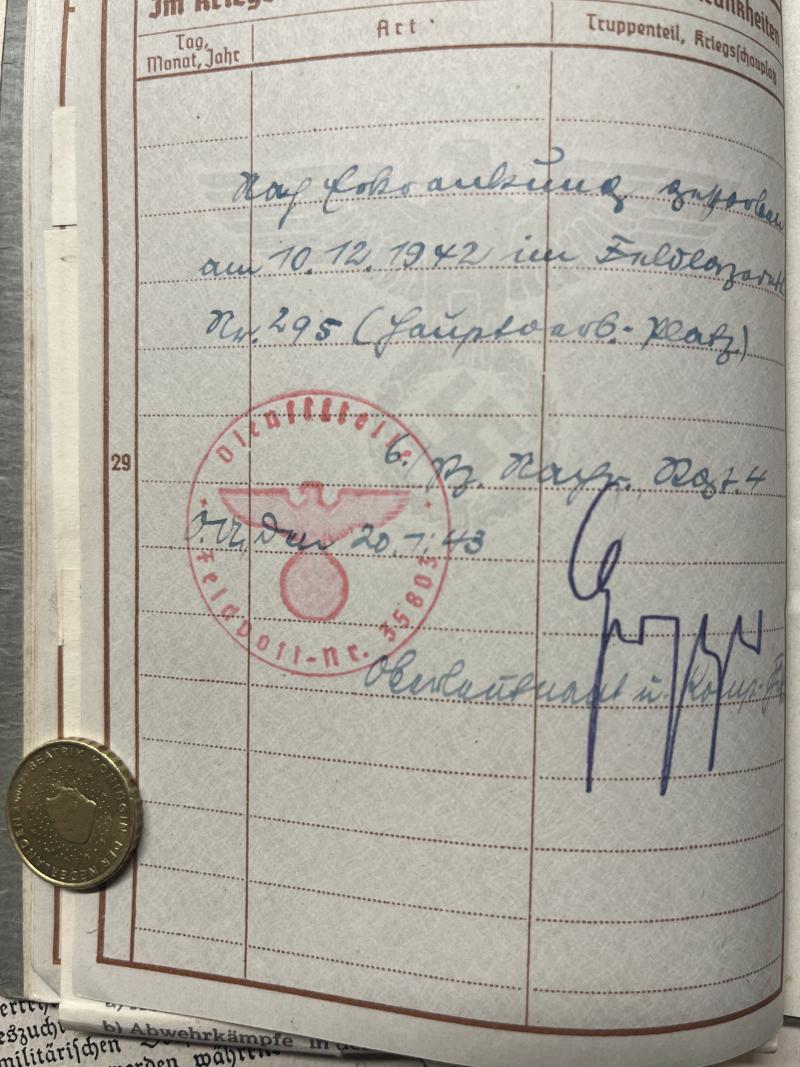 Im Krieg
Tag, Monat, Jahr
Art
Truppenteil, Kriegsschauplatz
Nach Erkrankung gestorben
am 10.12.1942 im Feldlazarett
Nr. 295 (Hauptverb.-Platz)
29
Dienststelle
6./Pz. Nachr. Regt. 4
O.U., den 20.1.43
Feldpost-Nr. 35803
Oberleutnant u. Komp.
BEATRIX KONINGIN DER NEDERLANDEN
b) Abwehrkämpfe in
militärischen
werden während